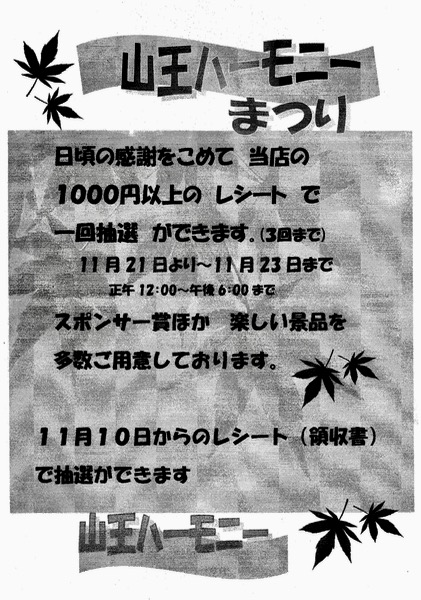 山王ハーモニー
まつり
日頃の感謝をこめて 当店の
1000円以上の レシート で
一回抽選 ができます。(3回まで)
11月21日より～11月23日まで
正午12:00～午後6:00まで
スポンサー賞ほか 楽しい景品を
多数ご用意しております。
11月10日からのレシート（領収書）
で抽選ができます
山王ハーモニー